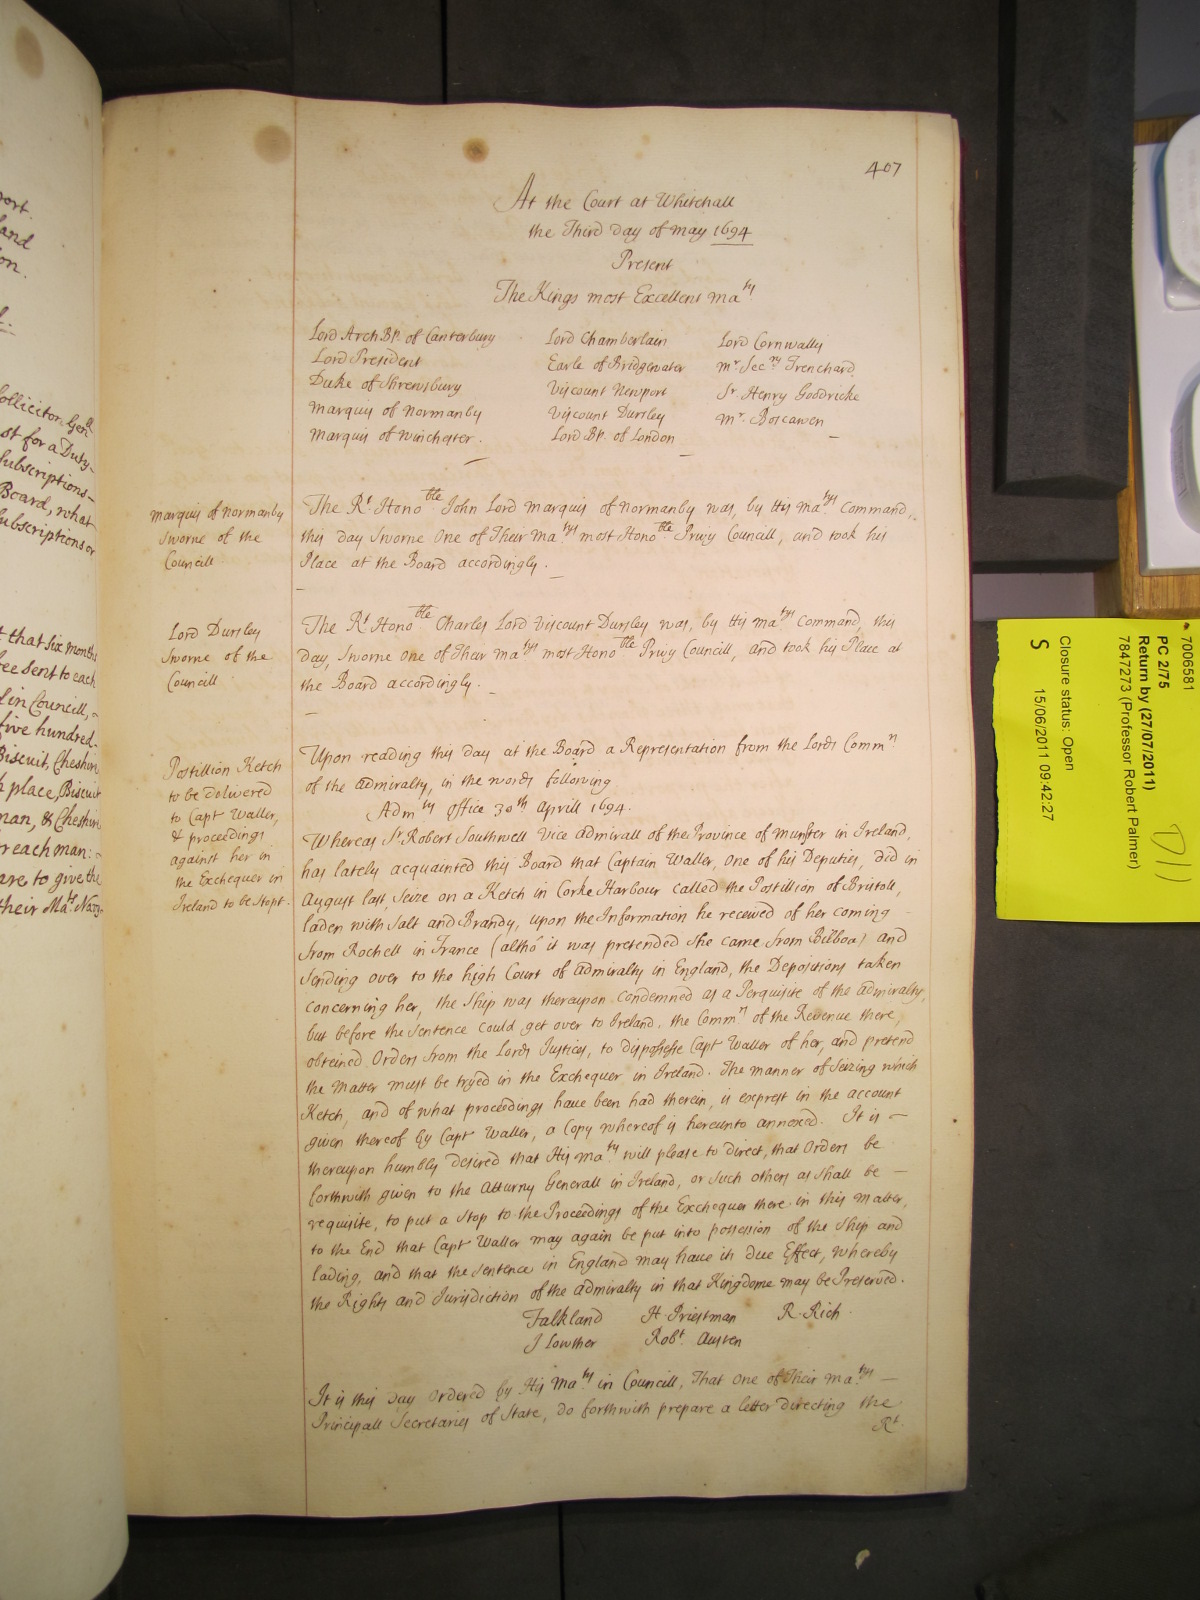 407
At the Court at Whitehall
the Third day of may 1694
Present
The Kings most Excellent Ma.ty
Lord ArchBp. of Canterbury
Lord President
Duke of Shrewsbury
Marquis of Normanby
Marquis of Winchester.
Lord Chamberlain
Earle of Bridgewater
Viscount Newport
Viscount Dursley
Lord Bp. of London
Lord Cornwallis
Mr. Sec.ry Trenchard
Sr. Henry Goodricke
Mr. Boscawen
Marquis of Normanby
Sworne of the
Councill
The Rt. Honoble John Lord Marquis of Normanby was, by His Ma.tys Command,
this day Sworne One of Their Ma.tys most Honoble Privy Councill, and took his
Place at the Board accordingly.
Lord Dursley
Sworne of the
Councill
The Rt. Honoble Charles Lord Viscount Dursley was, by His Ma.tys Command, this
day, Sworne one of Their Ma.tys most Honoble Privy Councill, and took his Place at
the Board accordingly.
Postillion Ketch
to be Delivered
to Capt Waller,
& proceedings
against her in
the Exchequer in
Ireland to be Stopt.
Upon reading this day at the Board a Representation from the Lords Comm.rs
of the Admiralty, in the words following
Adm.ty Office 30th Aprill 1694.
Whereas Sr. Robert Southwell Vice Admirall of the Province of Munster in Ireland,
has lately acquainted this Board that Captain Waller, one of his Deputies, did in
August last, Seize on a Ketch in Corke Harbour called the Postillion of Bristoll,
laden with Salt and Brandy, upon the Information he received of her coming
from Rochell in France (altho' it was pretended she came from Bilboa) and
Sending over to the high Court of Admiralty in England, the Depositions taken
concerning her, the Ship was thereupon Condemned as a Perquisite of the Admiralty,
but before the Sentence could get over to Ireland, the Comm.rs of the Revenue there,
obteined Orders from the Lords Justices, to dispossesse Capt Waller of her, and pretend
the Matter must be tryed in the Exchequer in Ireland. The manner of Seizing which
Ketch, and of what proceedings have been had therein, is exprest in the account
given thereof by Capt Waller, a Copy whereof is hereunto annexed. It is
thereupon humbly desired that His Ma.ty will please to direct, that Orders be
forthwith given to the Atturny Generall in Ireland, or such others as shall be
requisite, to put a Stop to the Proceedings of the Exchequer there in this Matter,
to the End that Capt Waller may again be put into possession of the Ship and
lading, and that the Sentence in England may have its due Effect, whereby
the Rights and Jurisdiction of the Admiralty in that Kingdome may be Preserved.
Falkland H. Priestman R. Rich
J Lowther Robt. Austen
It is this day Ordered by His Ma.ty in Councill, That One of Their Ma.tys
Principall Secretaries of State, do forthwith prepare a letter directing the
Rt.
ort.
and
on.
Sollicitor Genll
st for a Duty
Subscriptions
Board, what
Subscriptions or
t that six months
ee sent to each
d in Councill,
five hundred
Biscuit, Cheshire
h place, Biscuit
man, & Cheshire
r each man:
are to give the
their Ma.ts Navy
7006581
PC 2/75
Return by (27/07/2011)
7847273 (Professor Robert Palmer)
Closure status: Open
S 15/06/2011 09:42:27